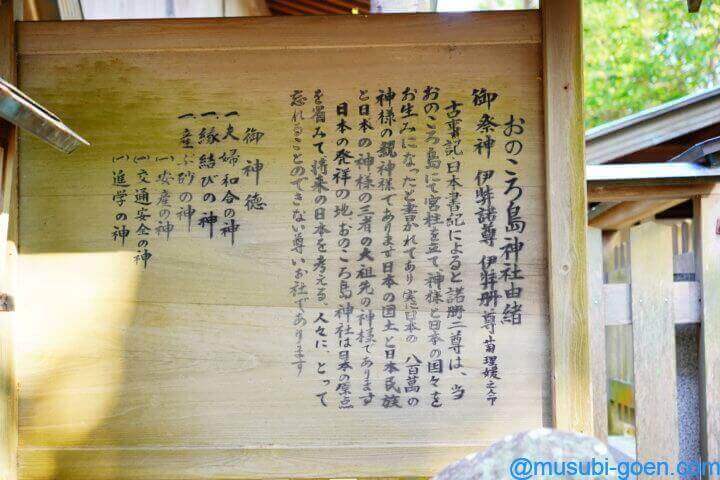 おのころ島神社由緒
御祭神 伊弉諾尊 伊弉册尊 菊理媛之命
古事記・日本書記によると諾册二尊は、当
おのころ島にて宮柱を立て、神様と日本の国々を
お生みになったと書かれてあり実に日本の 八百萬の
神様の親神様であります日本の国土と日本民族
と日本の神様の三者の大祖先の神様であります
日本の発祥の地おのころ島神社は日本の原点
を省みて将来の日本を考える、人々に、とって
忘れることのできない尊いお社であります
御神徳
一、夫婦和合の神
一、縁結びの神
一、産ぶ砂の神
(一)安産の神
(一)交通安全の神
(一)進学の神
@musubi-goen.com